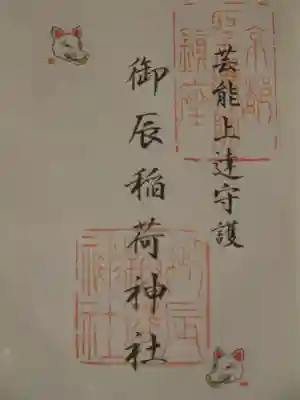 芸能上達守護
御辰稲荷神社